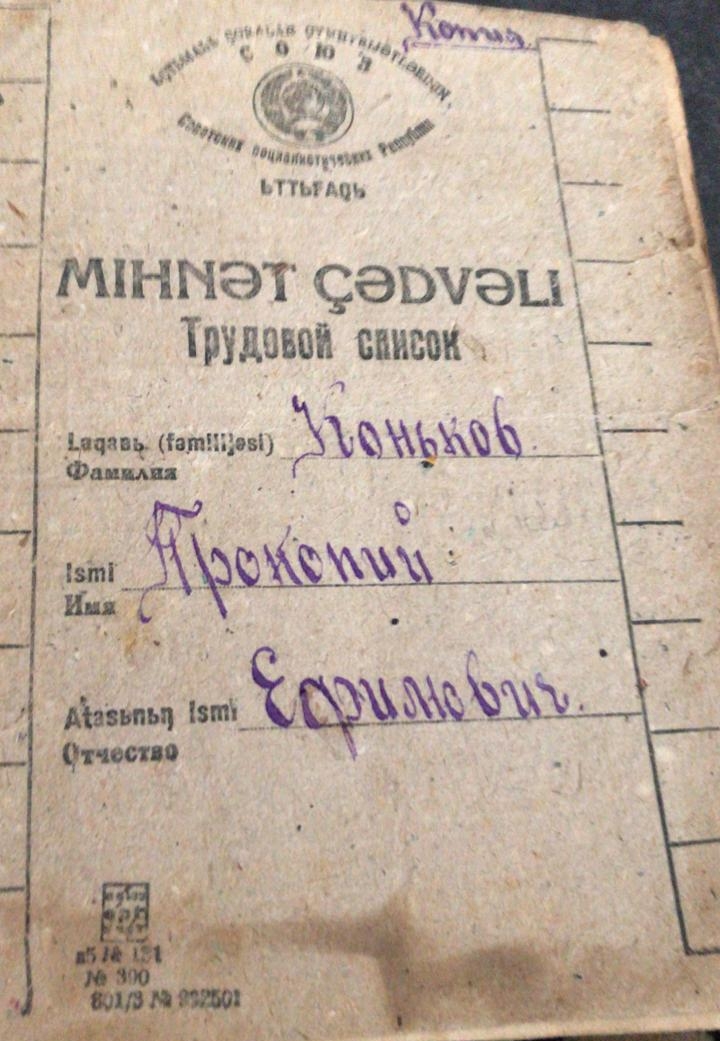 Копия
СОЮЗ
Советских социалистических Республик
ЬТТЬFАQЬ
MIHNƏT ÇƏDVƏLI
Трудовой список
Laqabь (familijəsi) Коньков
Фамилия
Ismi Прокопий
Имя
Atasьnьꞑ Ismi Ефимович.
Отчество
№ 390